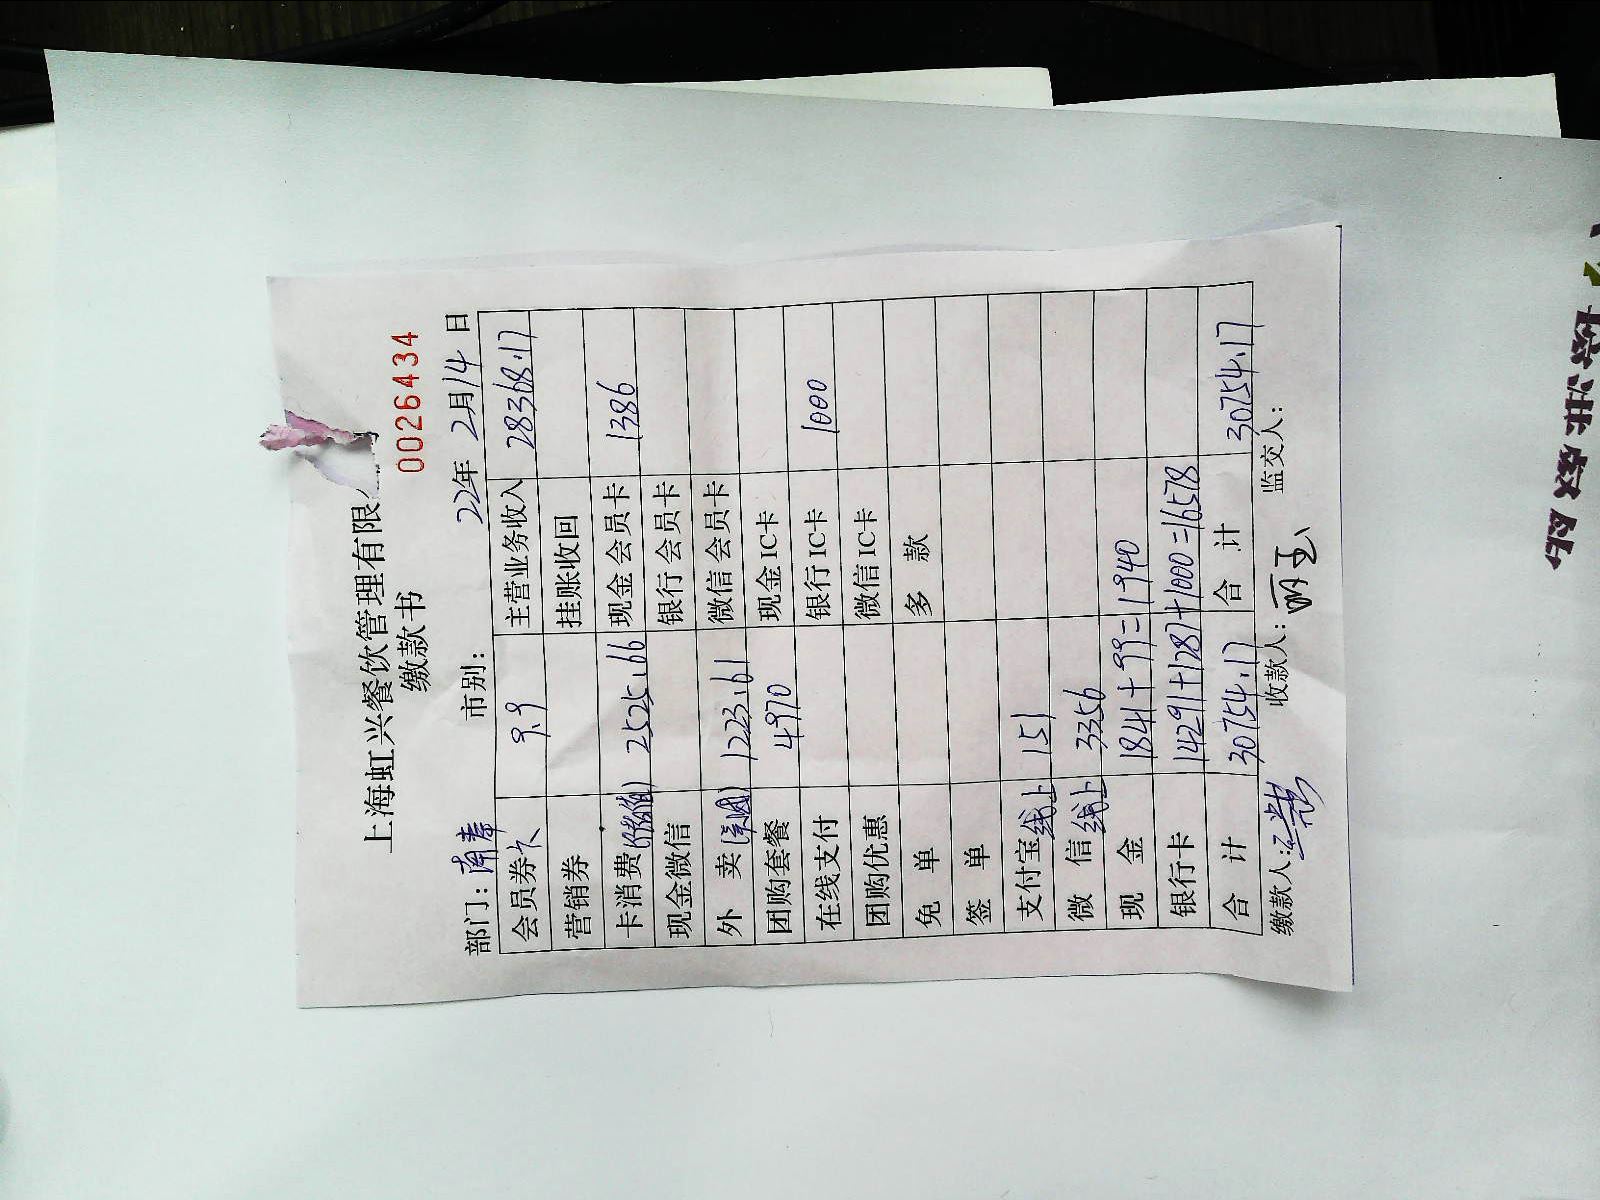 上海虹兴餐饮管理有限
缴款书
0026434
部门: 南奉 市别: 22年 2月14日
会员券卡 9.9 主营业务收入 28368.17
营销券 挂账收回
卡消费(储值) 2525.66 现金会员卡 1386
现金微信 银行会员卡
外 卖 1223.61 微信会员卡
团购套餐 4970 现金IC卡
在线支付 银行IC卡 1000
团购优惠 微信IC卡
免 单 多 款
签 单
支付宝线上 151
微 信线上 3356
现 金 1841+99=1940
银行卡 14291+1287+1000=16578
合 计 30754.17 合 计 30754.17
缴款人: 收款人: 监交人: